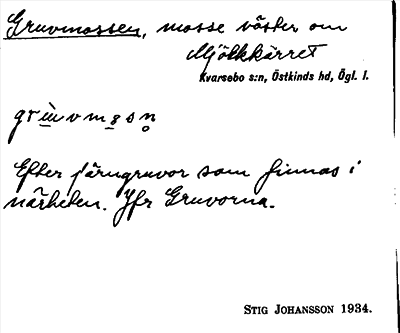 Gruvmossen, mosse väster om
Mjölkkärret
Kvarsebo s:n, Östkinds hd, Ögl. l.
grùvmåsn̥
Efter järngruvor som finnas i
närheten. Jfr Gruvorna.
STIG JOHANSSON 1934.